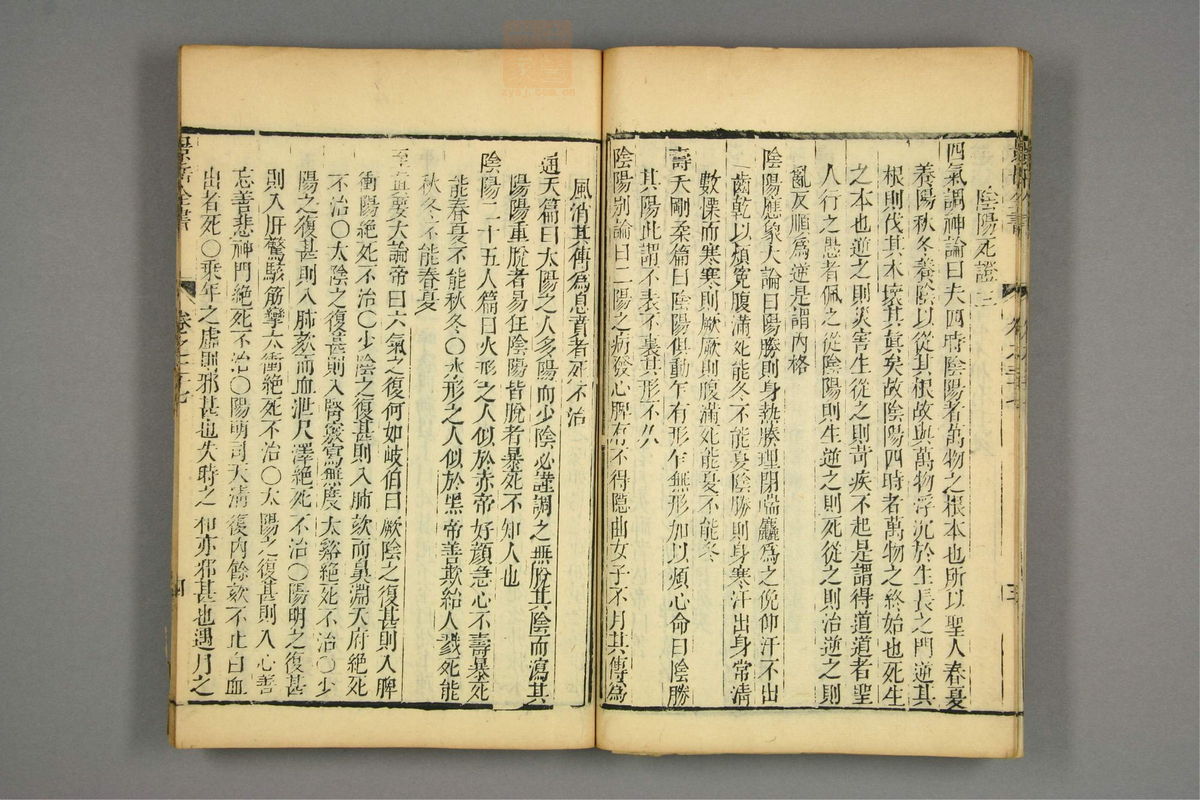 陰陽死證三
四氣調神論曰夫四時陰陽者萬物之根本也所以聖人春夏
養陽秋冬養陰以從其根故與萬物浮沉於生長之門逆其
根則伐其本壞其眞矣故陰陽四時者萬物之終始也死生
之本也逆之則災害生從之則苛疾不起是謂得道道者聖
人行之愚者佩之從陰陽則生逆之則死從之則治逆之則
亂反順爲逆是謂內格
陰陽應象大論曰陽勝則身熱腠理閉喘麤爲之俛仰汗不出
齒乾以煩冤腹滿死能冬不能夏陰勝則身寒汗出身常清
數慄而寒寒則厥厥則腹滿死能夏不能冬
壽夭剛柔篇曰陰陽俱動乍有形乍無形加以煩心命曰陰勝
其陽此謂不表不裏其形不久
陰陽別論曰二陽之病發心脾有不得隱曲女子不月其傳爲
風消其傳爲息賁者死不治
通天篇曰太陽之人多陽而少陰必謹調之無脫其陰而瀉其
陽陽重脫者易狂陰陽皆脫者暴死不知人也
陰陽二十五人篇曰火形之人似於赤帝好顔急心不壽暴死
能春夏不能秋冬○水形之人似於黑帝善欺紿人戮死能
秋冬不能春夏
至眞要大論帝曰六氣之復何如岐伯曰厥陰之復甚則入脾
衝陽絶死不治○少陰之復甚則入肺欬而鼻淵天府絶死
不治○太陰之復甚則入腎竅寫無度太谿絶死不治○少
陽之復甚則入肺欬而血泄尺澤絶死不治○陽明之復甚
則入肝驚駭筋攣太衝絶死不治○太陽之復甚則入心善
忘善悲神門絶死不治○陽明司天清復內餘欬不止白血
出者死○乘年之虛則邪甚也失時之和亦邪甚也遇月之
景岳全書
卷之三十七
四
三
zysj.com.cn